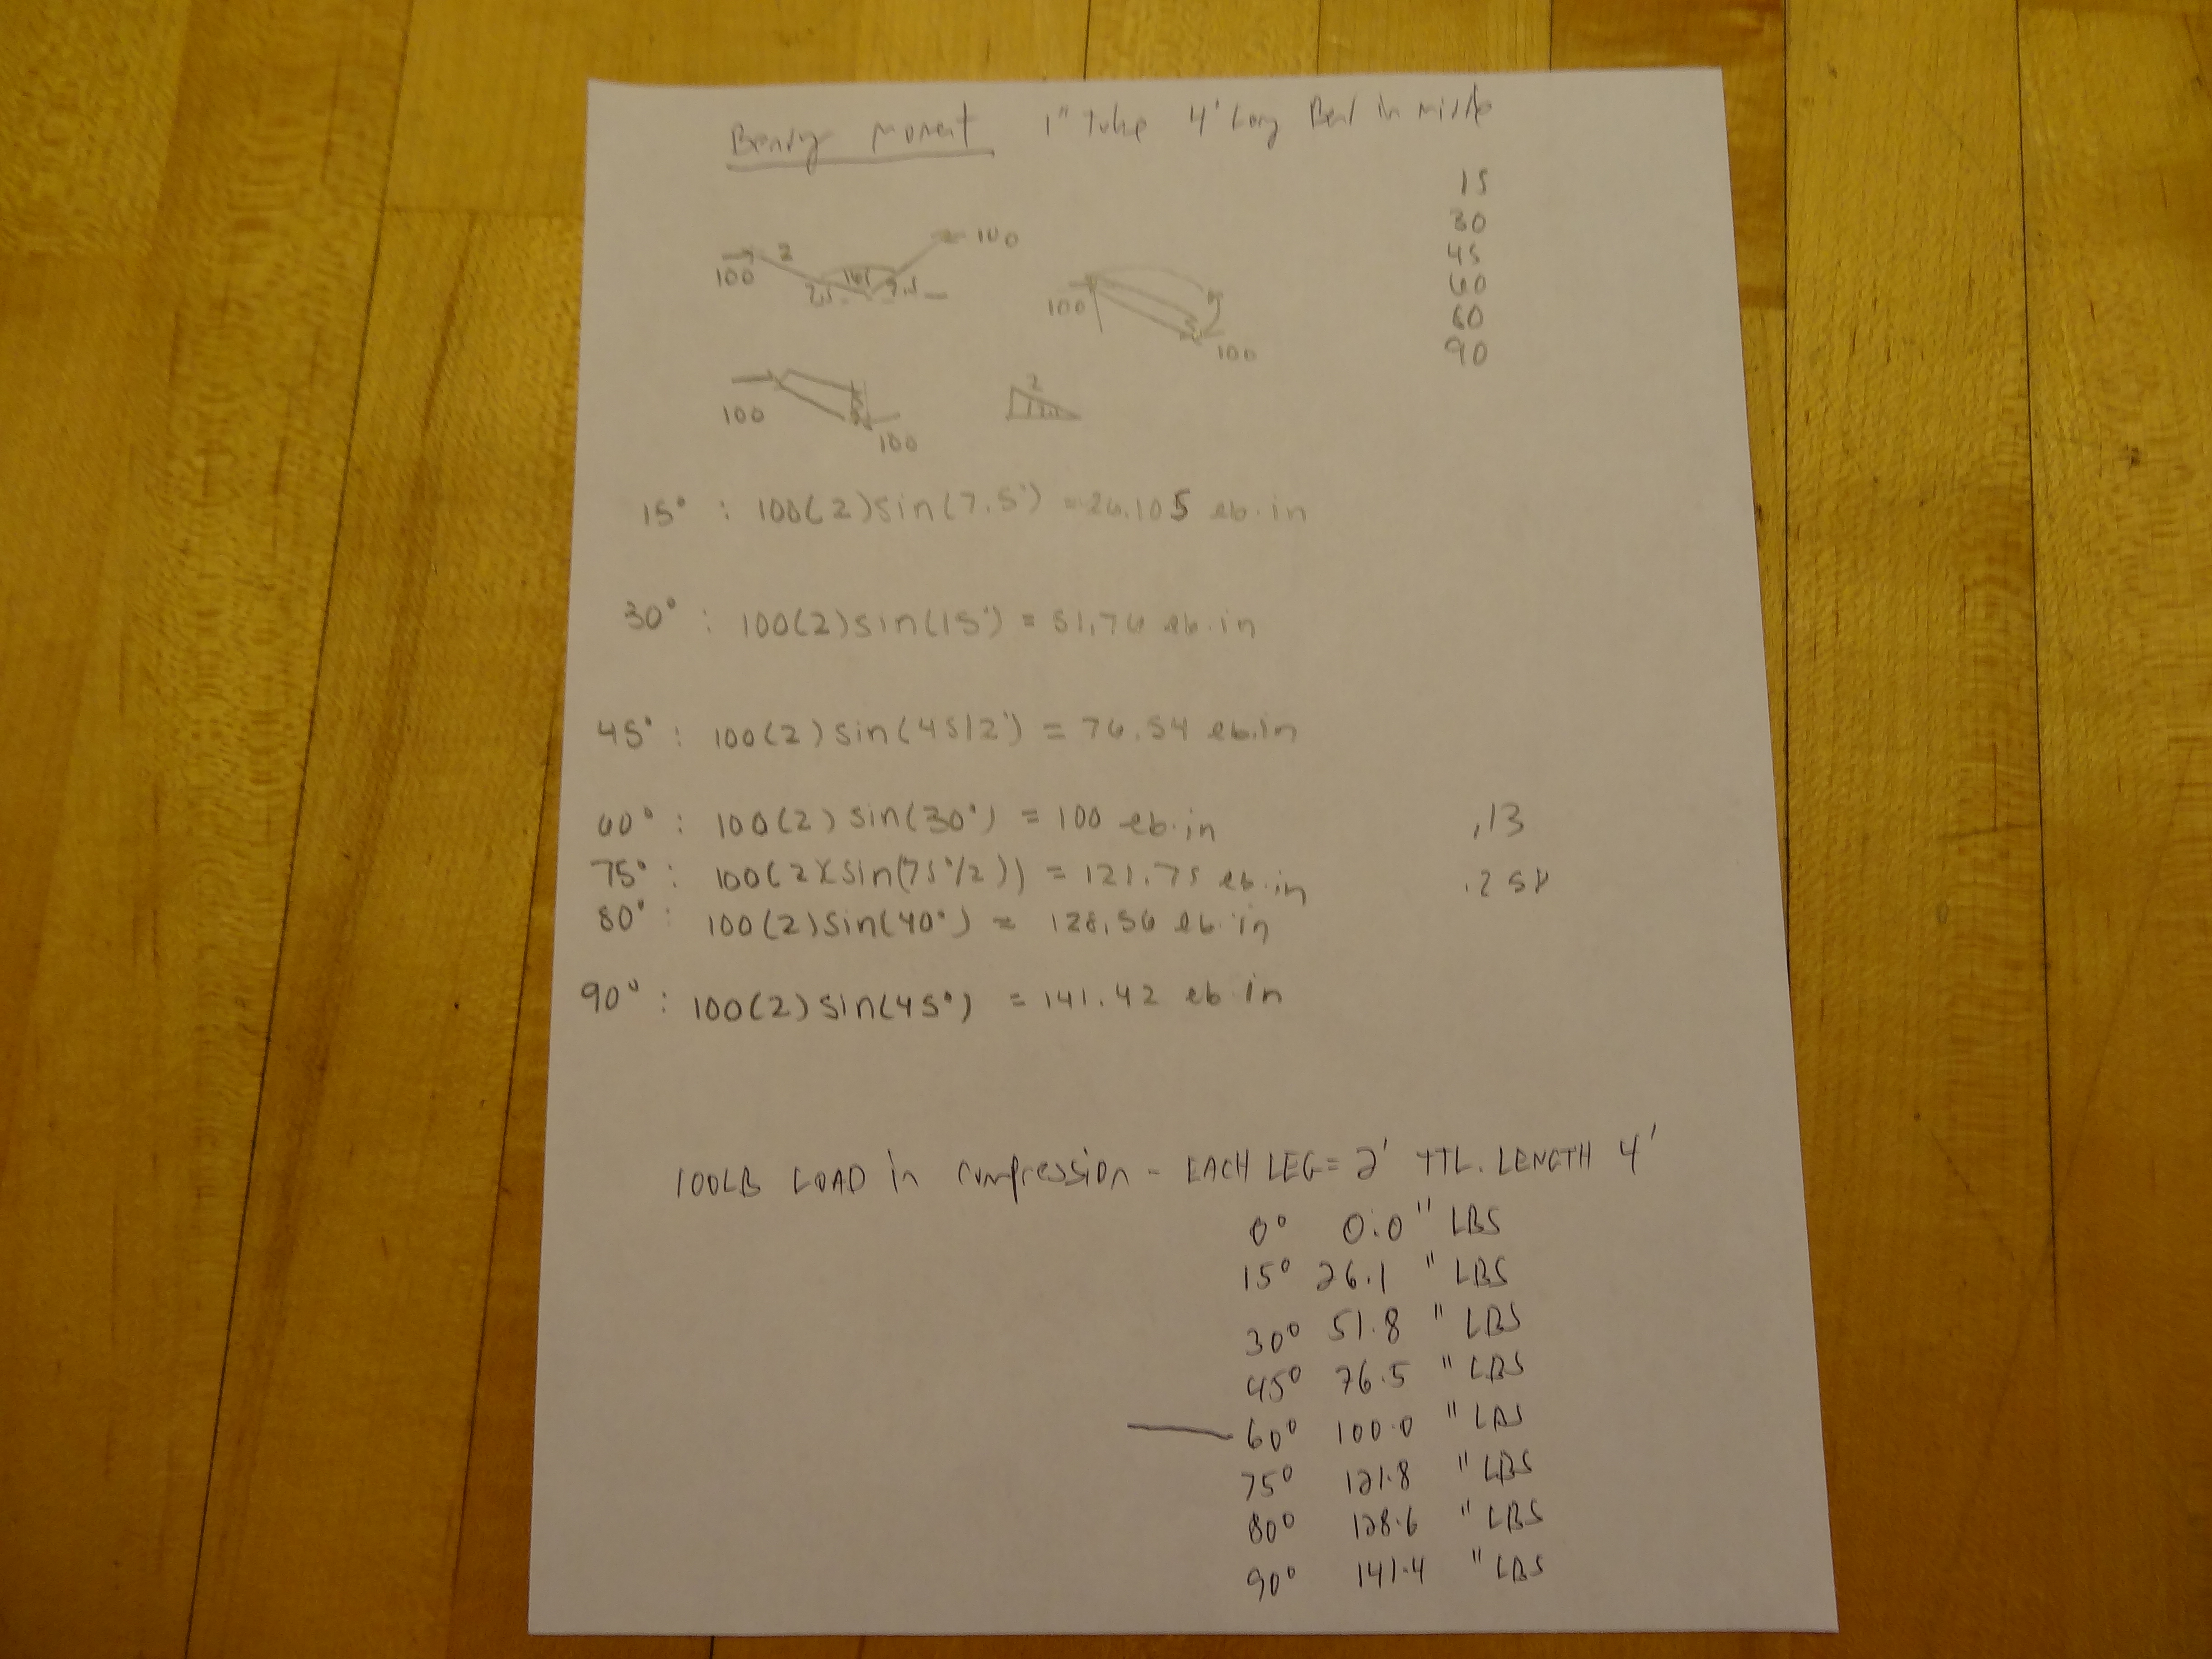 Bending moment 1" tube 4' Long Bend in middle
15
30
45
60
80
90
100 2 100
7.5 7.5
100 100
100 100
2
15° : 100(2)sin(7.5°) = 26.105 lb·in
30° : 100(2)sin(15°) = 51.76 lb·in
45° : 100(2)sin(45/2°) = 76.54 lb·in
60° : 100(2)sin(30°) = 100 lb·in ,13
75° : 100(2)(sin(75°/2)) = 121.75 lb·in .258
80° : 100(2)sin(40°) = 128.56 lb·in
90° : 100(2)sin(45°) = 141.42 lb·in
100LB LOAD in compression - EACH LEG = 2' TTL. LENGTH 4'
0° 0.0 " LBS
15° 26.1 " LBS
30° 51.8 " LBS
45° 76.5 " LBS
60° 100.0 " LBS
75° 121.8 " LBS
80° 128.6 " LBS
90° 141.4 " LBS